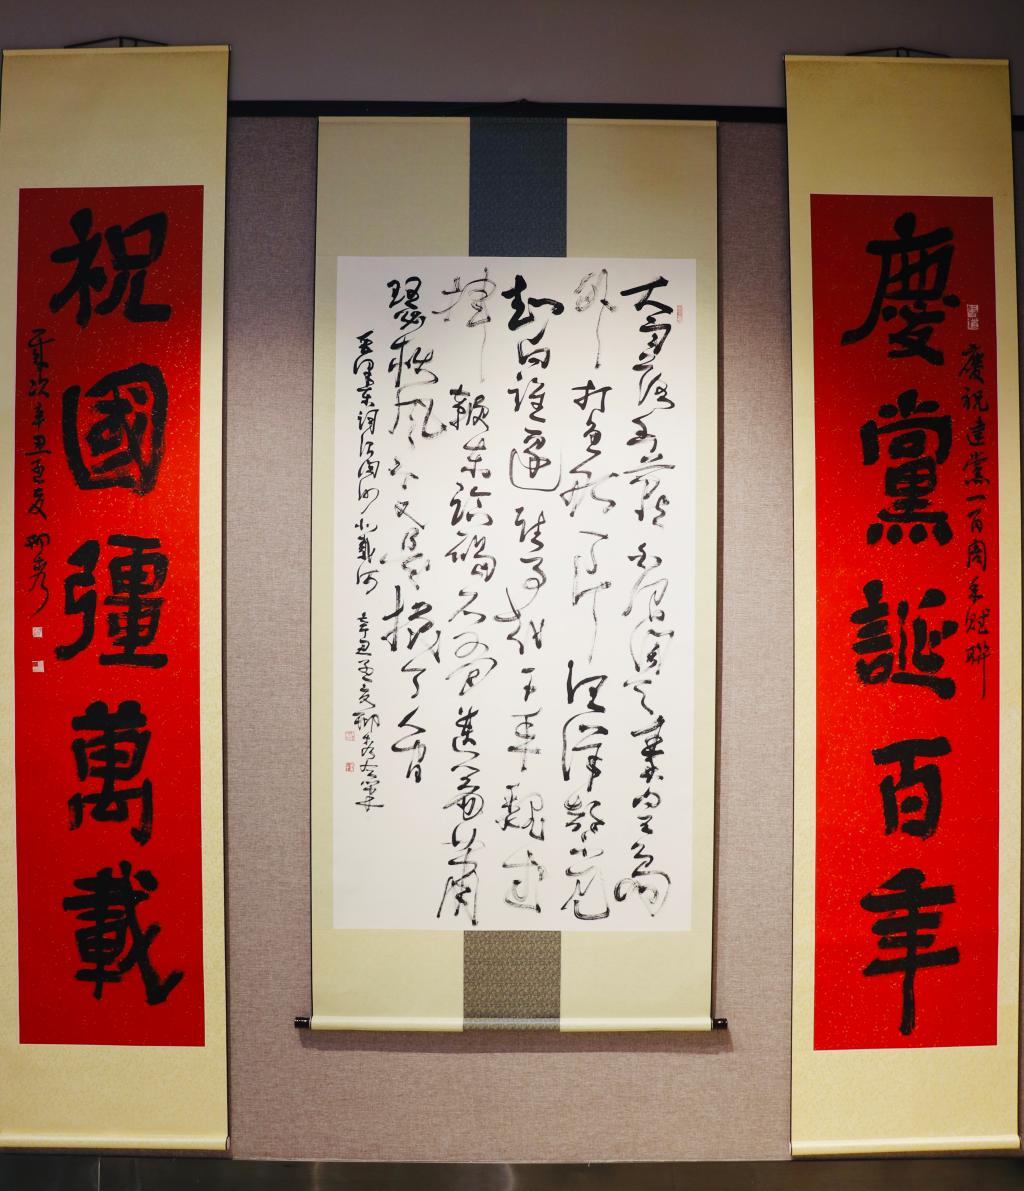 慶黨誕百年
慶祝建黨一百周年賦聯
大雨落幽燕白浪滔天秦皇島
外打魚船一片汪洋都不見
知向誰邊往事越千年魏武
揮鞭東臨碣石有遺篇蕭
瑟秋風今又是換了人間
毛澤東詞浪淘沙北戴河 辛丑孟夏
祝國彊萬載
歲次辛丑孟夏